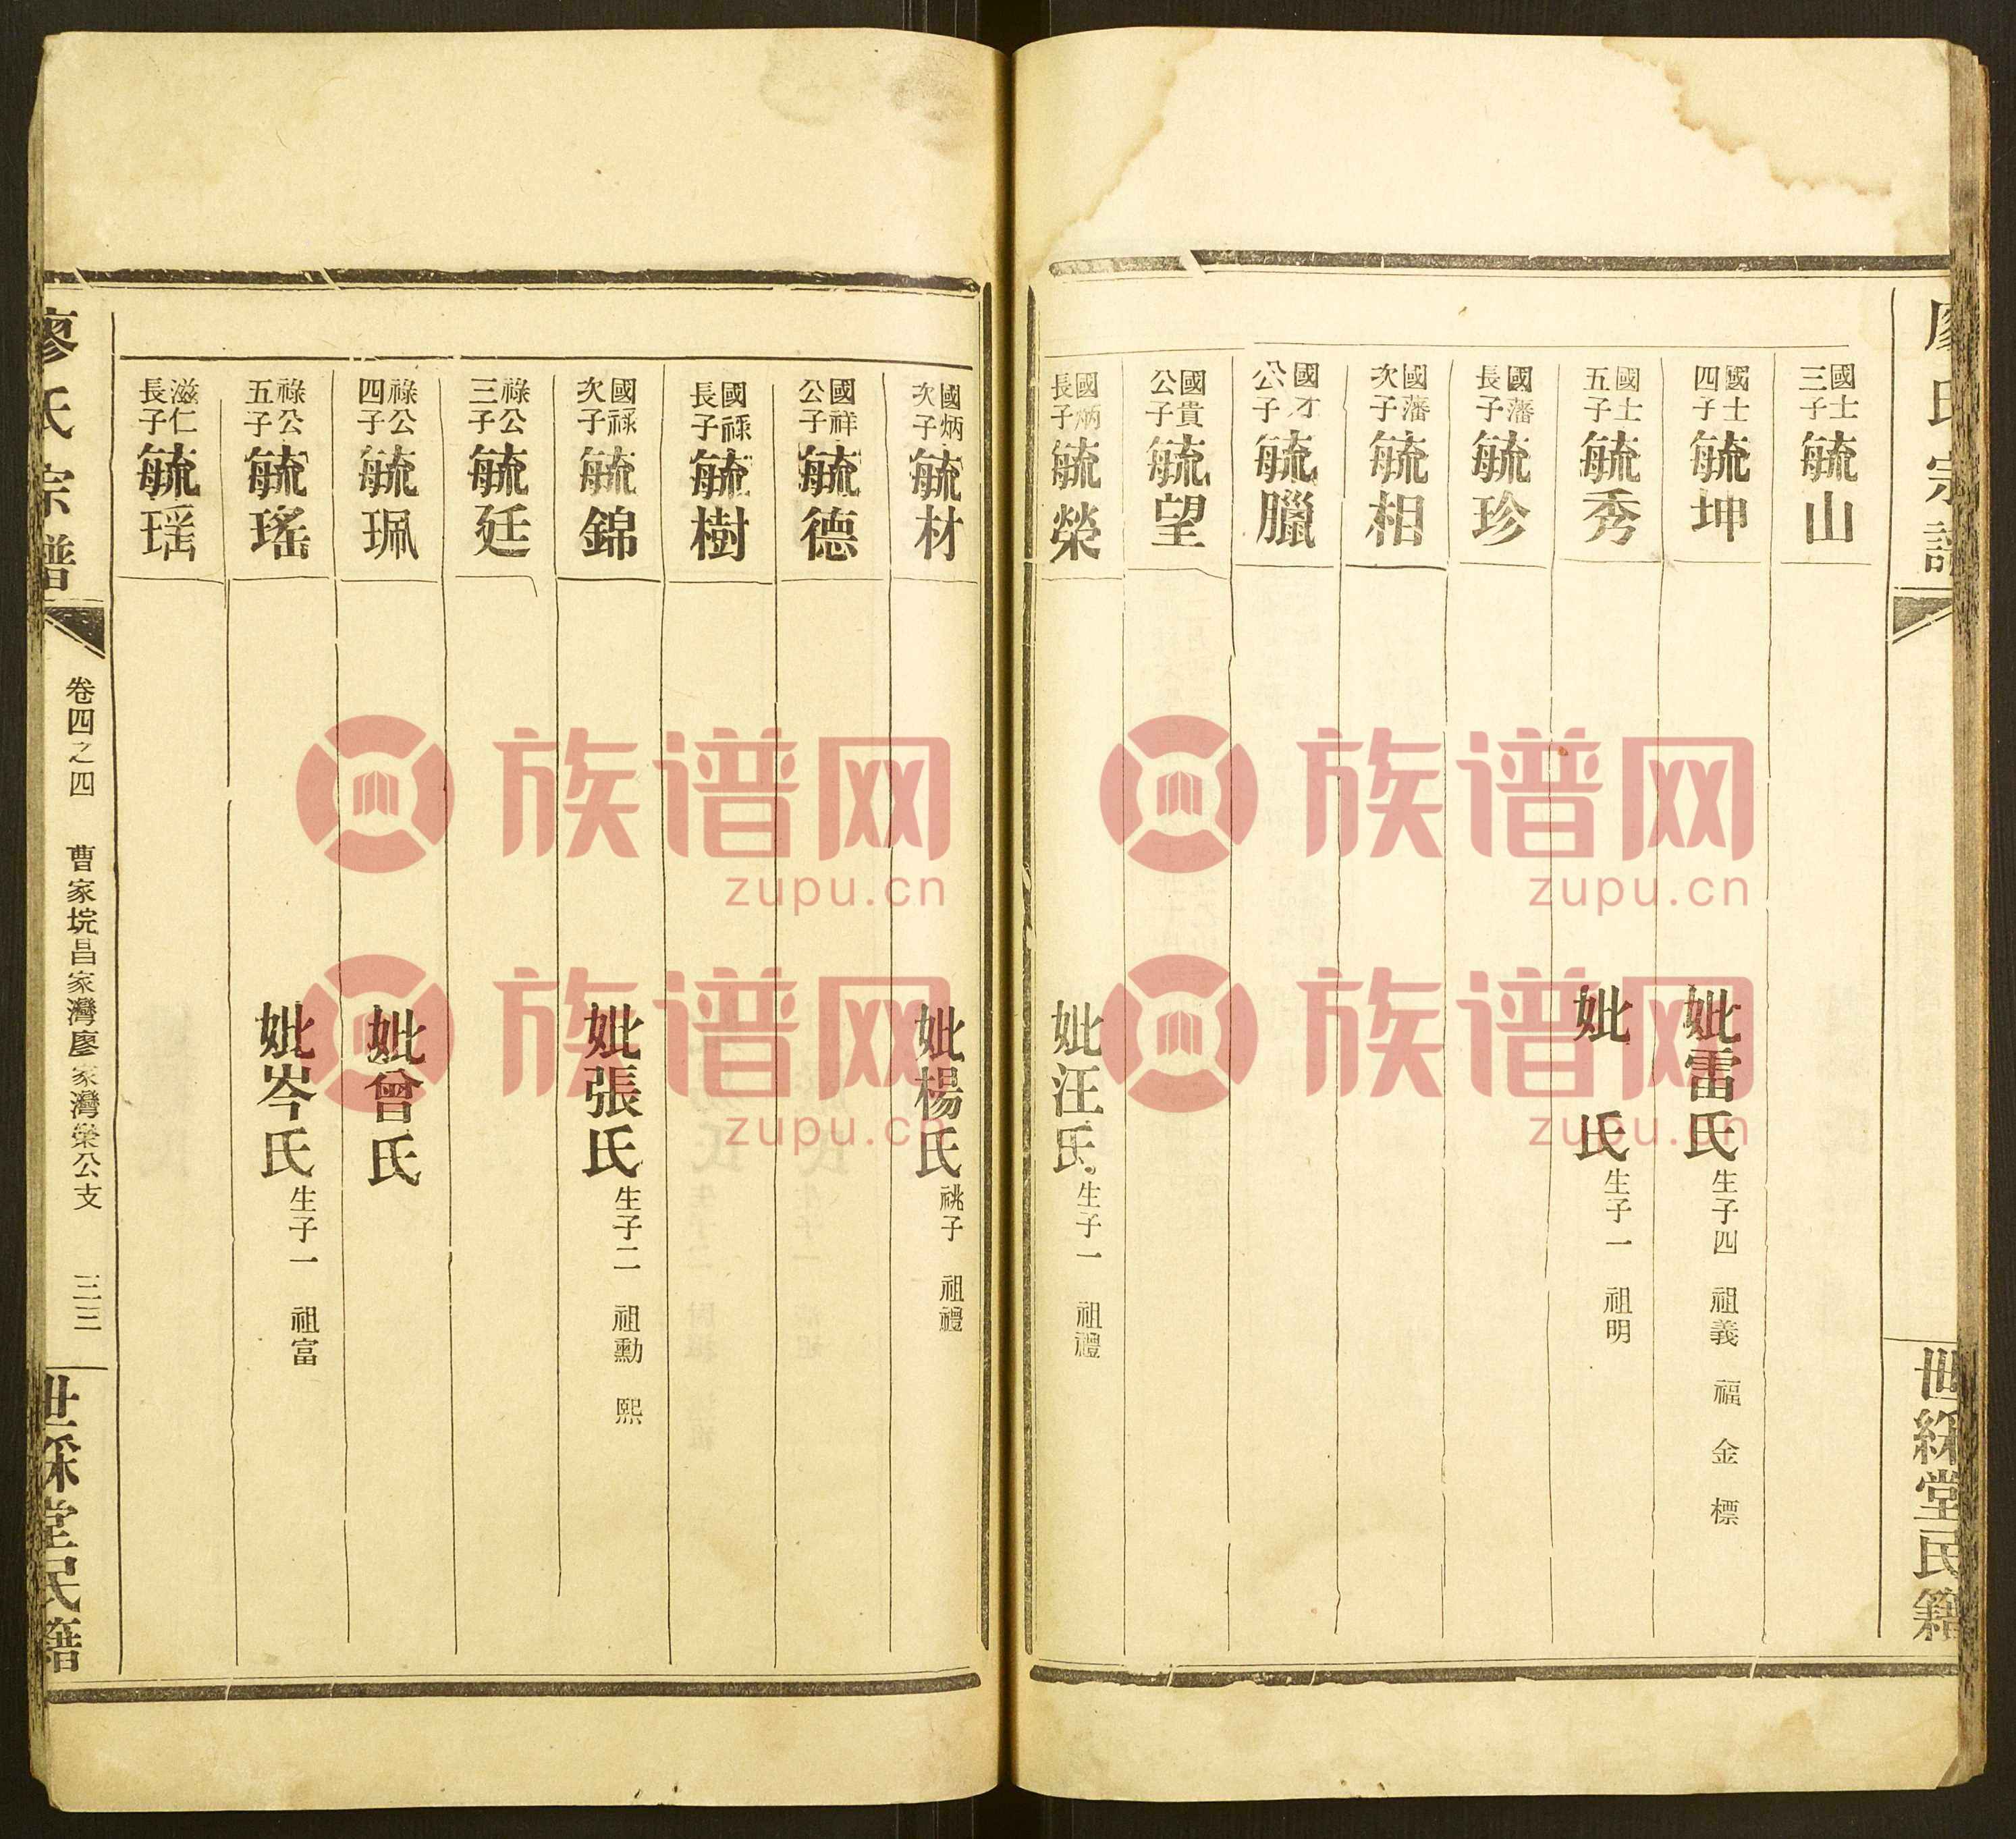 廖氏宗譜
世綵堂民籍
國士三子 毓山
國士四子 毓坤 妣雷氏 生子四 祖義 福 金 標
國士五子 毓秀 妣 氏 生子一 祖明
國藩長子 毓珍
國藩次子 毓相
國才公子 毓臘
國貴公子 毓望
國炳長子 毓榮 妣汪氏 生子一 祖禮
國炳次子 毓材 妣楊氏 祧子 祖禮
國祥公子 毓德
國祿長子 毓樹
國祿次子 毓錦 妣張氏 生子二 祖勳 熙
祿公三子 毓廷
祿公四子 毓珮 妣曾氏
祿公五子 毓瑤 妣岑氏 生子一 祖富
滋仁長子 毓瑶
廖氏宗譜
卷四之四 曹家垸昌家灣廖家灣榮公支 三三
世綵堂民籍
族谱网
zupu.cn
族谱网
zupu.cn
族谱网
zupu.cn
族谱网
zupu.cn